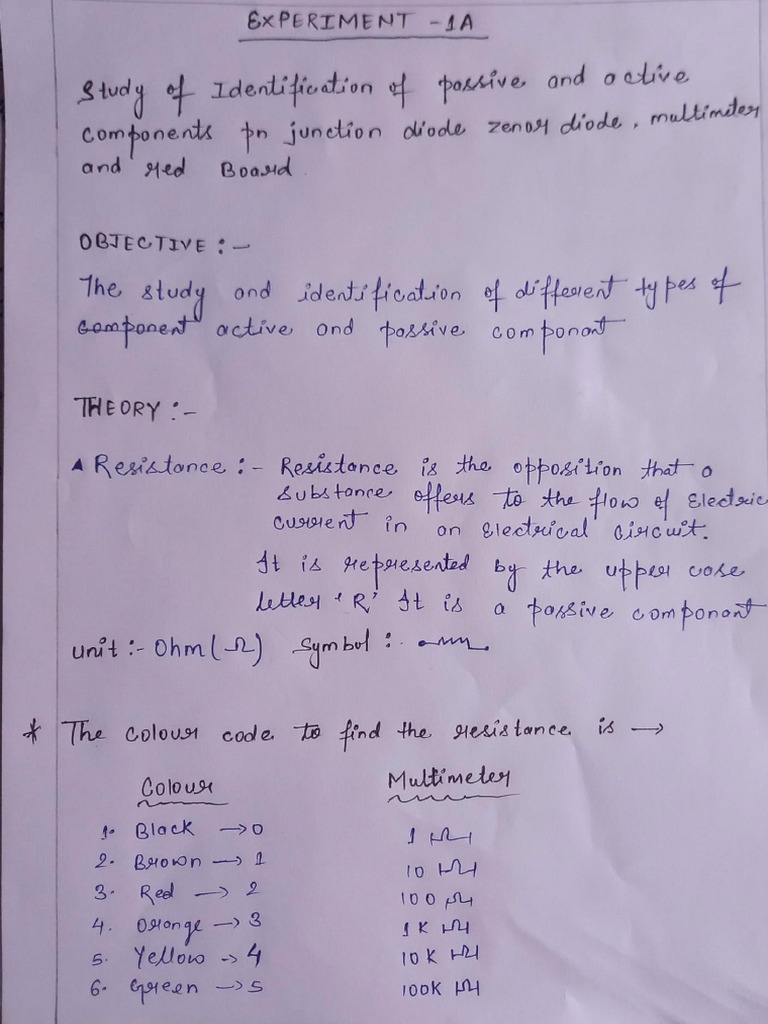 EXPERIMENT - 1A
Study of Identification of passive and active
components pn junction diode zenor diode, multimeter
and red Board
OBJECTIVE :-
The study and identification of different types of
component active and passive componant
THEORY :-
▲ Resistance :- Resistance is the opposition that a
substance offers to the flow of Electric
current in an Electrical circuit.
It is represented by the upper case
letter 'R' It is a passive componant
unit :- Ohm (Ω) Symbol :-
* The colour code to find the resistance is →
Colour Multimeter
1. Black → 0 1 Ω
2. Brown → 1 10 Ω
3. Red → 2 100 Ω
4. Orange → 3 1K Ω
5. Yellow → 4 10K Ω
6. Green → 5 100K Ω